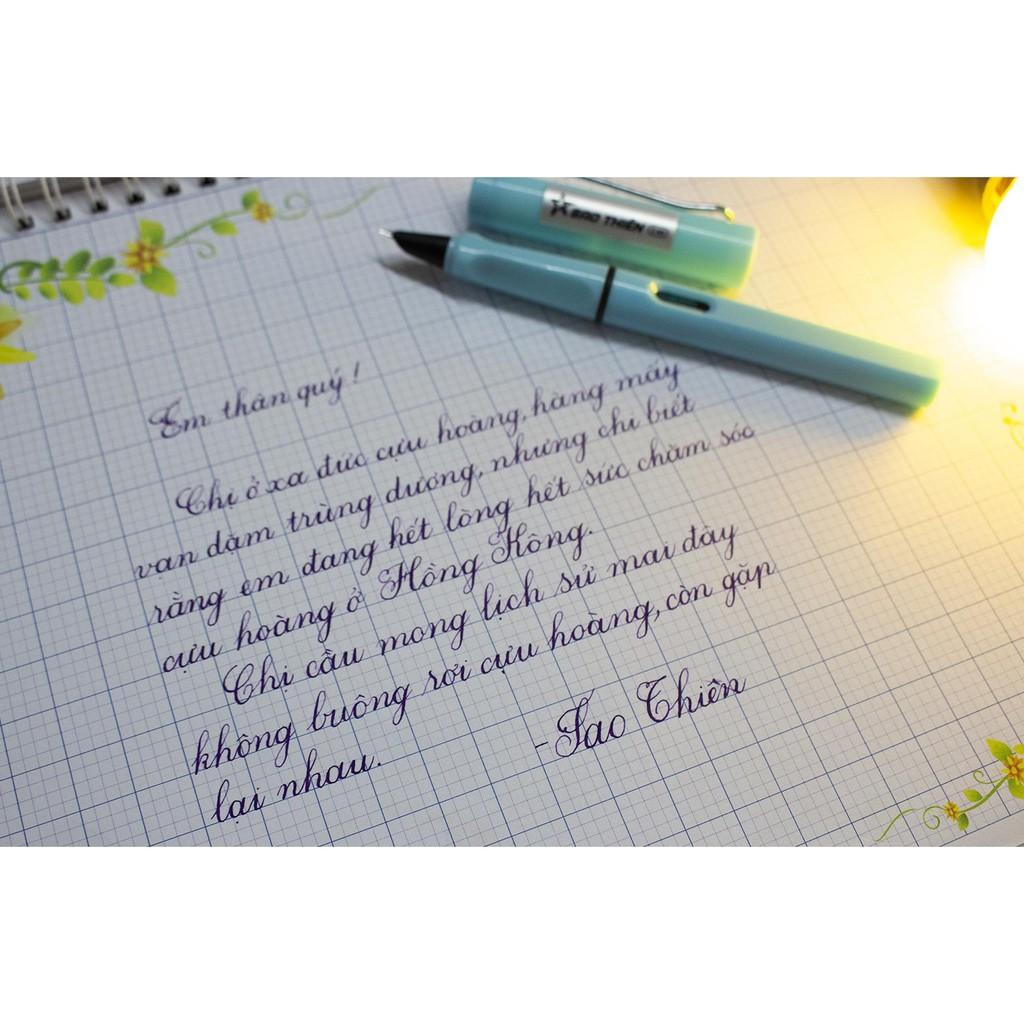 SAO THIÊN
Em thân quý!
Chị ở xa đức cựu hoàng, hàng mấy
vạn dặm trùng dương, nhưng chị biết
rằng em đang hết lòng hết sức chăm sóc
cựu hoàng ở Hồng Kông.
Chị cầu mong lịch sử mai đây
không buông rơi cựu hoàng, còn gặp
lại nhau.
- Sao Thiên